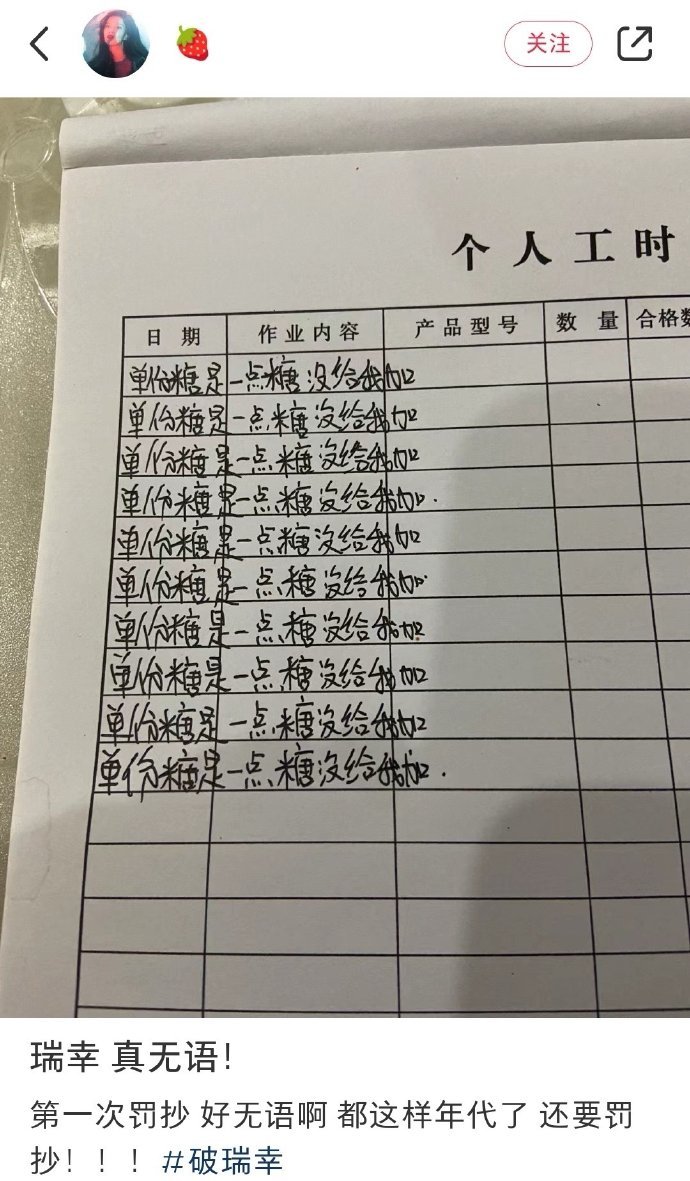 关注
个人工时
日期 作业内容 产品型号 数量 合格数
单份糖是一点糖没给我加
单份糖是一点糖没给我加
单份糖是一点糖没给我加
单份糖是一点糖没给我加.
单份糖是一点糖没给我加
单份糖是一点糖没给我加.
单份糖是一点糖没给我加
单份糖是一点糖没给我加
单份糖是一点糖没给我加
单份糖是一点糖没给我加.
瑞幸 真无语！
第一次罚抄 好无语啊 都这样年代了 还要罚
抄！！！ #破瑞幸